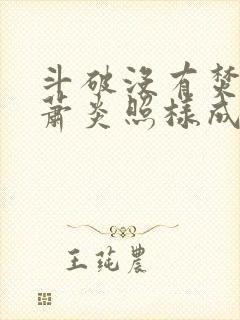 斗破没有焚
萧炎照样成
王莼農